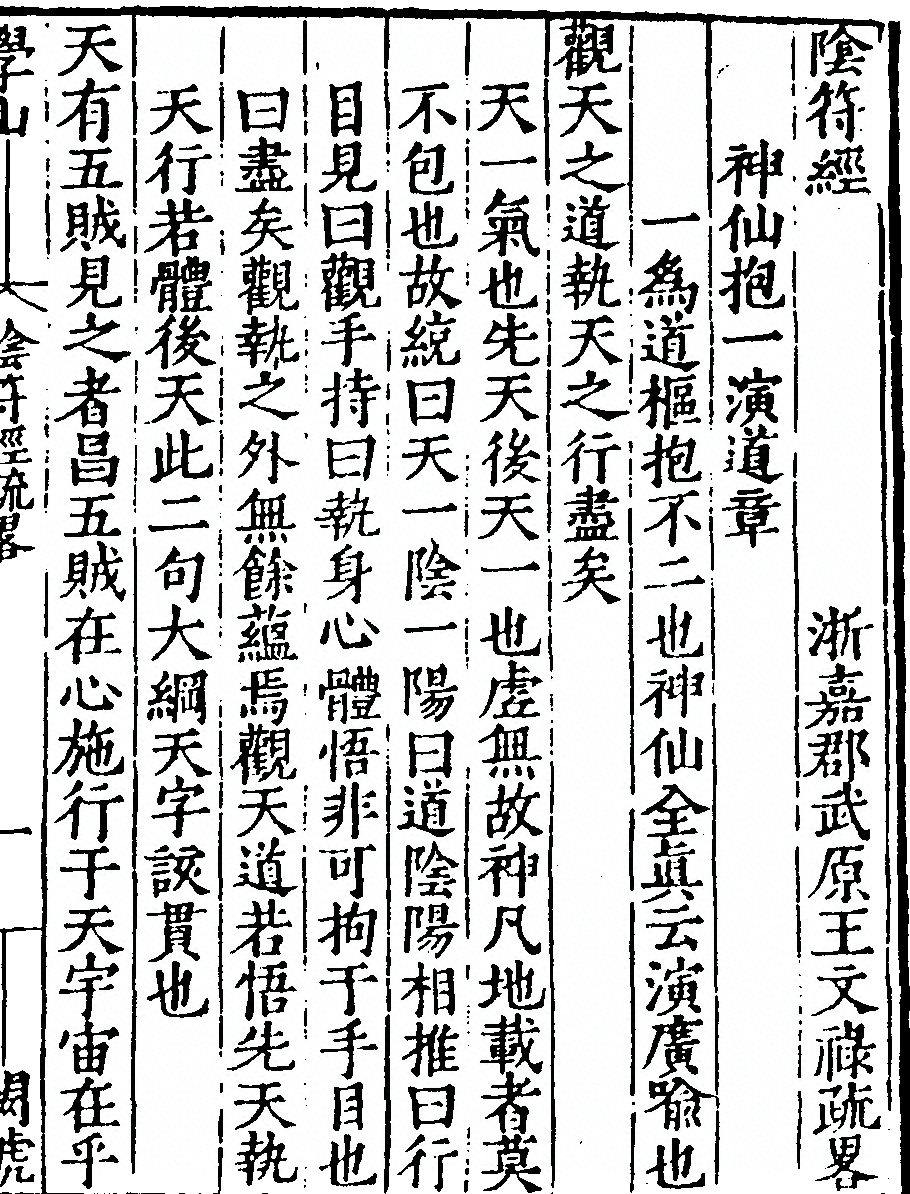 陰符經　浙嘉郡武原王文祿疏畧
神仙抱一演道章
一爲道樞抱不二也神仙全眞云演廣喻也
觀天之道執天之行盡矣
天一氣也先天後天一也虛無故神凡地載者莫
不包也故統曰天一陰一陽曰道陰陽相推曰行
目見曰觀手持曰執身心體悟非可拘于手目也
曰盡矣觀執之外無餘蘊焉觀天道若悟先天執
天行若體後天此二句大綱天字該貫也
天有五賊見之者昌五賊在心施行于天宇宙在乎
學山　陰符經疏畧　一